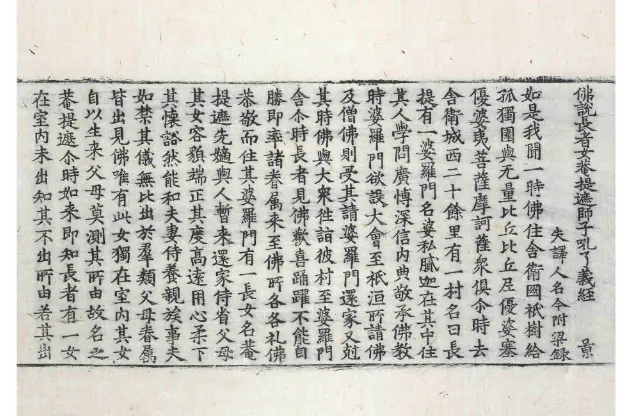 佛說長者女菴提遮師子吼了義經
失譯人名今附梁錄　景
如是我聞一時佛住舍衛國祇樹給
孤獨園與无量比丘比丘尼優婆塞
優婆夷菩薩摩訶薩衆俱尒時去
舍衛城西二十餘里有一村名曰長
提有一婆羅門名婆私膩迦在其中住
其人學問廣博深信內典敬承佛教
時婆羅門欲設大會至祇洹所請佛
及僧佛則受其請婆羅門還家又尅
其時佛與大衆徃詣彼村至婆羅門
舍尒時長者見佛歡喜踊躍不能自
勝即率諸眷屬來至佛所各各礼佛
恭敬而住其婆羅門有一長女名菴
提遮先嫡與人暫来還家侍省父母
其女容貌端正其度高遠用心柔下
其懷豁然能和夫妻侍養親族事夫
如禁其儀無比出於羣類父母眷屬
皆出見佛唯有此女獨在室內其女
自以生来父母莫測其所由故名之
菴提遮尒時如来即知長者有一女
在室內未出知其不出所由若其出